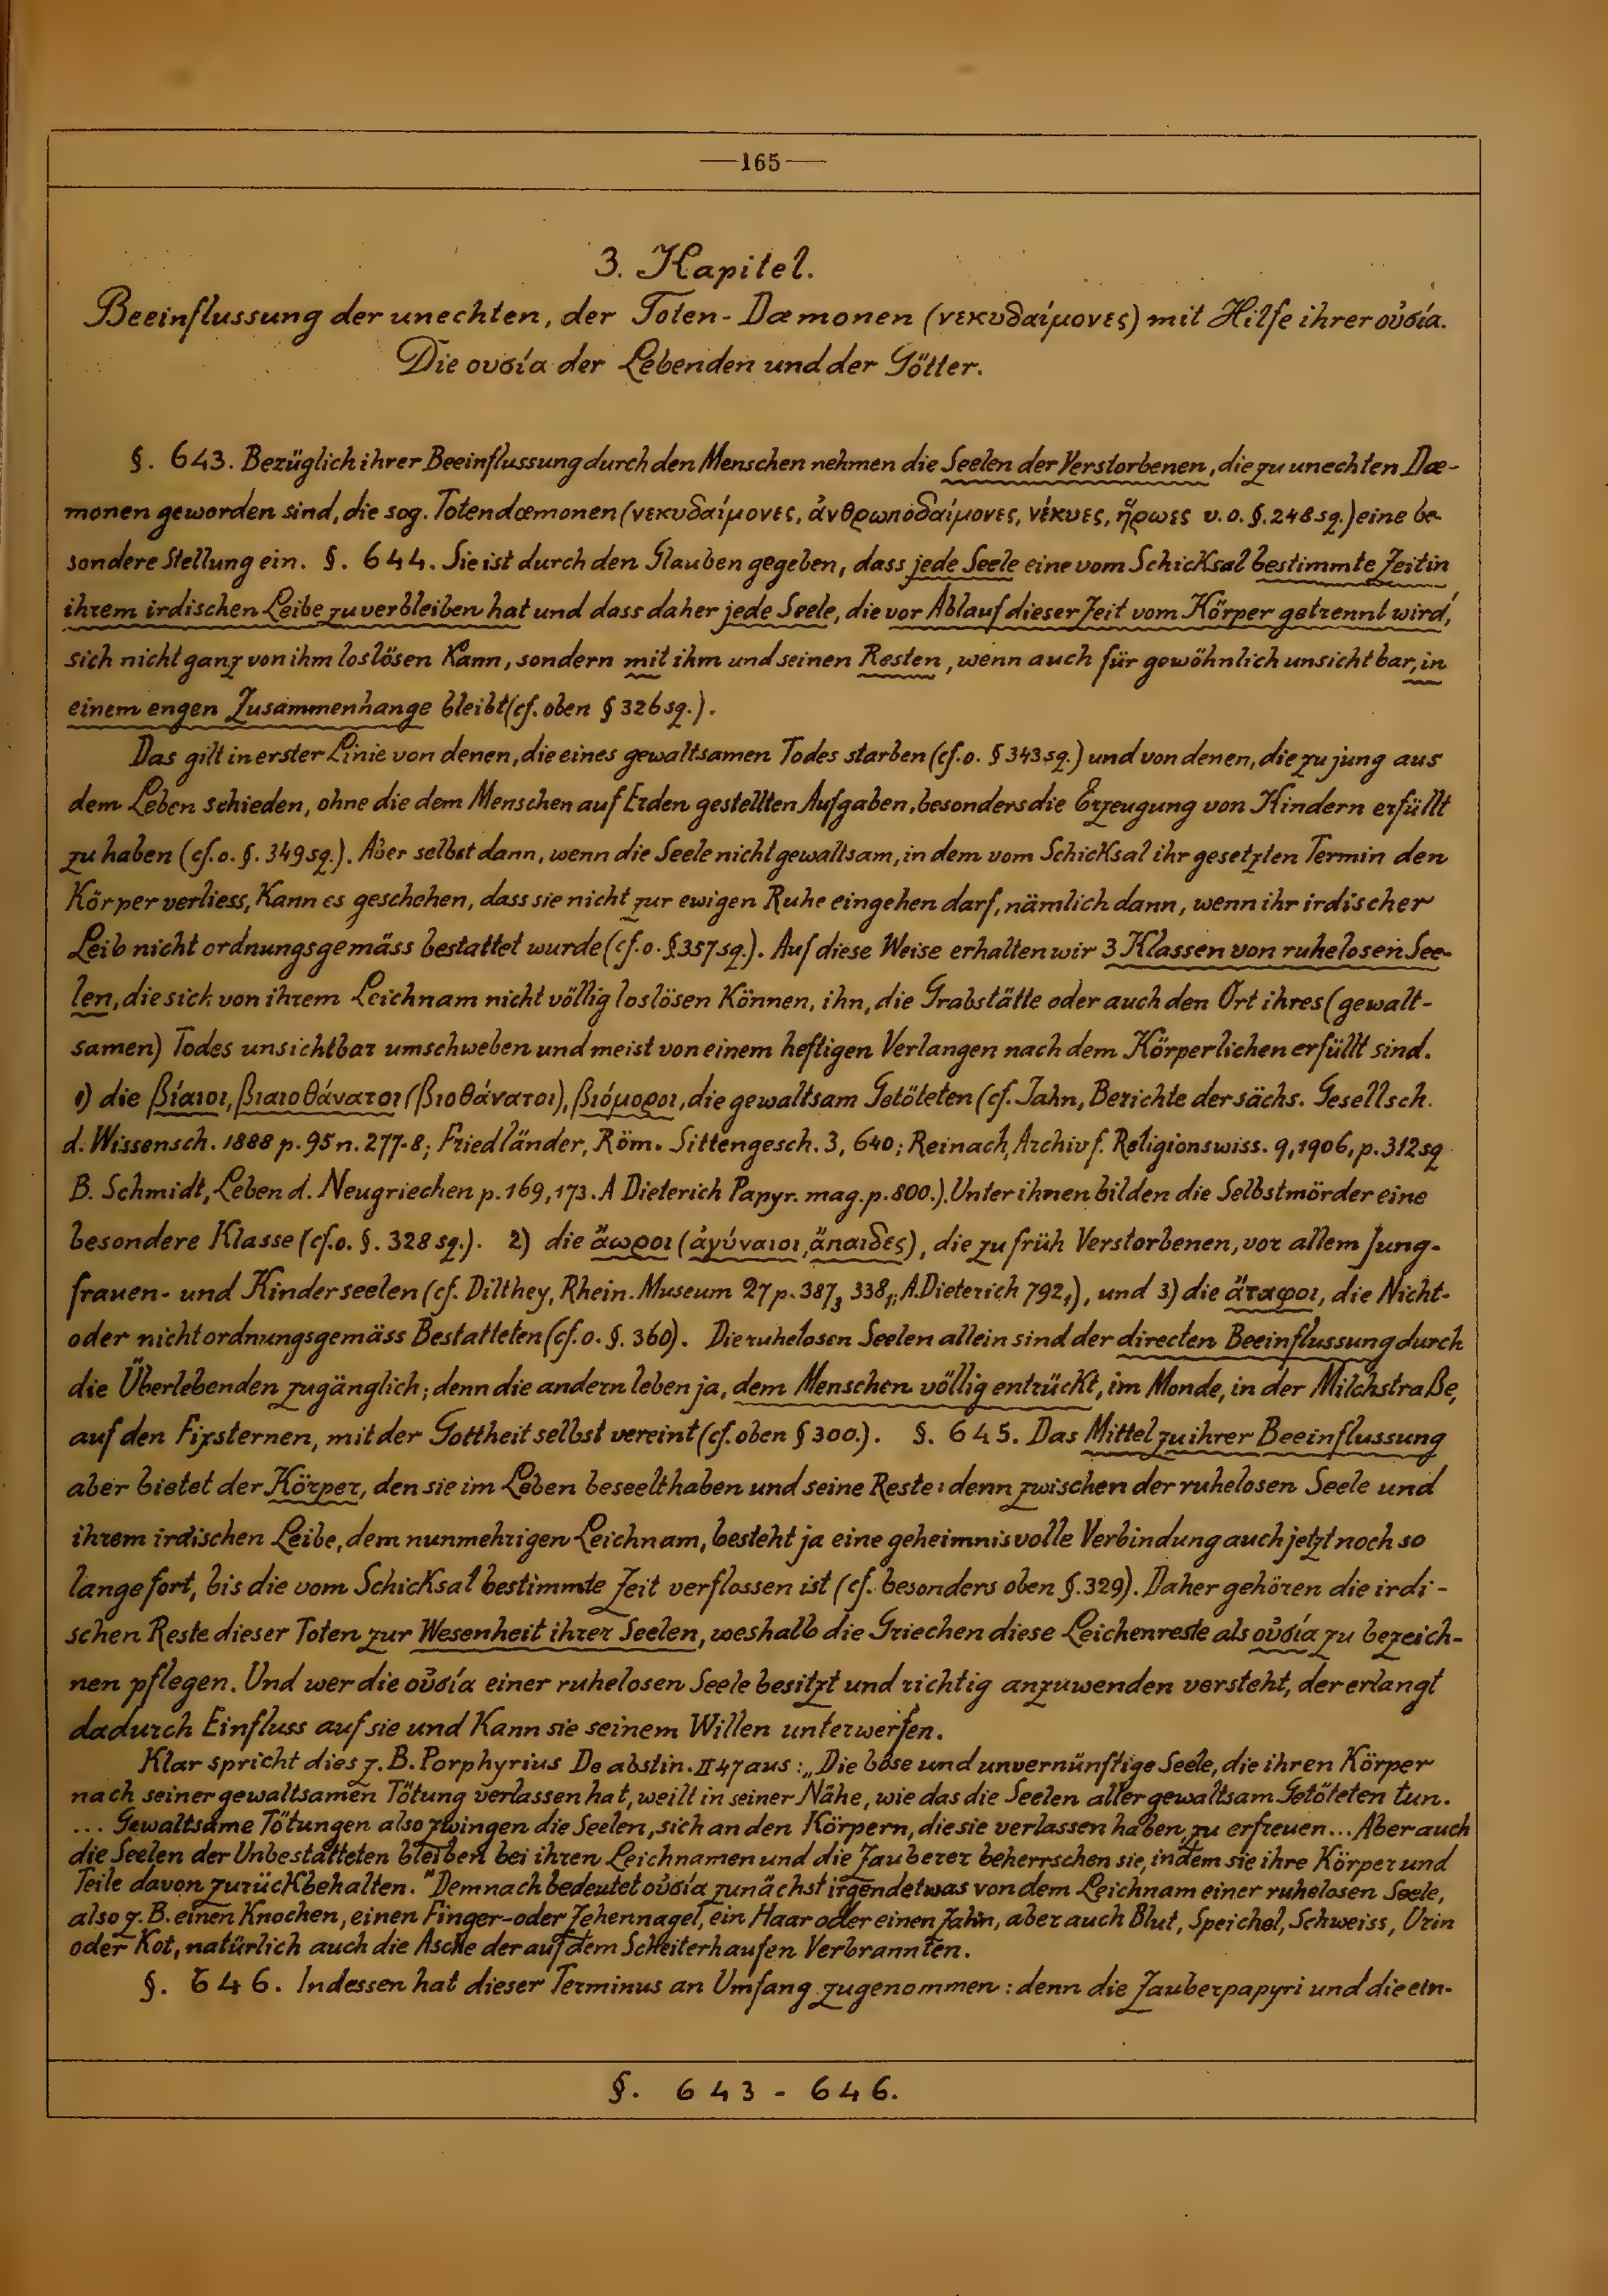 —165—
3. Kapitel.
Beeinflussung der unechten, der Toten-Dæmonen (νεκυδαίμονες) mit Hilfe ihrer οὐσία.
Die ουσία der Lebenden und der Götter.
§. 643. Bezüglich ihrer Beeinflussung durch den Menschen nehmen die Seelen der Verstorbenen, die zu unechten Dæ-
monen geworden sind, die sog. Totendæmonen (νεκυδαίμονες, ἀνθρωποδαίμονες, νέκυες, ἥρωες v. o. §. 248 sq.) eine be-
sondere Stellung ein. §. 644. Sie ist durch den Glauben gegeben, dass jede Seele eine vom Schicksal bestimmte Zeit in
ihrem irdischen Leibe zu verbleiben hat und dass daher jede Seele, die vor Ablauf dieser Zeit vom Körper getrennt wird,
sich nicht ganz von ihm loslösen kann, sondern mit ihm und seinen Resten, wenn auch für gewöhnlich unsichtbar, in
einem engen Zusammenhange bleibt (cf. oben § 326 sq.).
Das gilt in erster Linie von denen, die eines gewaltsamen Todes starben (cf. o. § 343 sq.) und von denen, die zu jung aus
dem Leben schieden, ohne die dem Menschen auf Erden gestellten Aufgaben, besonders die Erzeugung von Kindern erfüllt
zu haben (cf. o. §. 349 sq.). Aber selbst dann, wenn die Seele nicht gewaltsam, in dem vom Schicksal ihr gesetzten Termin den
Körper verliess, kann es geschehen, dass sie nicht zur ewigen Ruhe eingehen darf, nämlich dann, wenn ihr irdischer
Leib nicht ordnungsgemäss bestattet wurde (cf. o. §. 357 sq.). Auf diese Weise erhalten wir 3 Klassen von ruhelosen See-
len, die sich von ihrem Leichnam nicht völlig loslösen können, ihn, die Grabstätte oder auch den Ort ihres (gewalt-
samen) Todes unsichtbar umschweben und meist von einem heftigen Verlangen nach dem Körperlichen erfüllt sind.
1) die βίαιοι, βιαιοθάνατοι (βιοθάνατοι), βιόμοροι, die gewaltsam Getöteten (cf. Jahn, Berichte der sächs. Gesellsch.
d. Wissensch. 1888 p. 95 n. 277-8; Friedländer, Röm. Sittengesch. 3, 640; Reinach, Archiv f. Religionswiss. 9, 1906, p. 312 sq
B. Schmidt, Leben d. Neugriechen p. 169, 173. A Dieterich Papyr. mag. p. 800.). Unter ihnen bilden die Selbstmörder eine
besondere Klasse (cf. o. §. 328 sq.). 2) die ἄωροι (ἀγύναιοι, ἄπαιδες), die zu früh Verstorbenen, vor allem Jung-
frauen- und Kinderseelen (cf. Dilthey, Rhein. Museum 27 p. 387, 338,; A. Dieterich 792,), und 3) die ἄταφοι, die Nicht-
oder nicht ordnungsgemäss Bestatteten (cf. o. §. 360). Die ruhelosen Seelen allein sind der directen Beeinflussung durch
die Überlebenden zugänglich; denn die andern leben ja, dem Menschen völlig entrückt, im Monde, in der Milchstraße,
auf den Fixsternen, mit der Gottheit selbst vereint (cf. oben § 300.). §. 645. Das Mittel zu ihrer Beeinflussung
aber bietet der Körper, den sie im Leben beseelt haben und seine Reste: denn zwischen der ruhelosen Seele und
ihrem irdischen Leibe, dem nunmehrigen Leichnam, besteht ja eine geheimnisvolle Verbindung auch jetzt noch so
lange fort, bis die vom Schicksal bestimmte Zeit verflossen ist (cf. besonders oben §. 329). Daher gehören die irdi-
schen Reste dieser Toten zur Wesenheit ihrer Seelen, weshalb die Griechen diese Leichenreste als οὐσία zu bezeich-
nen pflegen. Und wer die οὐσία einer ruhelosen Seele besitzt und richtig anzuwenden versteht, der erlangt
dadurch Einfluss auf sie und kann sie seinem Willen unterwerfen.
Klar spricht dies z. B. Porphyrius De abstin. II 47 aus: „Die böse und unvernünftige Seele, die ihren Körper
nach seiner gewaltsamen Tötung verlassen hat, weilt in seiner Nähe, wie das die Seelen aller gewaltsam Getöteten tun.
... Gewaltsame Tötungen also zwingen die Seelen, sich an den Körpern, die sie verlassen haben, zu erfreuen... Aber auch
die Seelen der Unbestatteten bleiben bei ihren Leichnamen und die Zauberer beherrschen sie, indem sie ihre Körper und
Teile davon zurückbehalten." Demnach bedeutet οὐσία zunächst irgendetwas von dem Leichnam einer ruhelosen Seele,
also z. B. einen Knochen, einen Finger- oder Zehennagel, ein Haar oder einen Zahn, aber auch Blut, Speichel, Schweiss, Urin
oder Kot, natürlich auch die Asche der auf dem Scheiterhaufen Verbrannten.
§. 646. Indessen hat dieser Terminus an Umfang zugenommen: denn die Zauberpapyri und die ein-
§. 643 - 646.